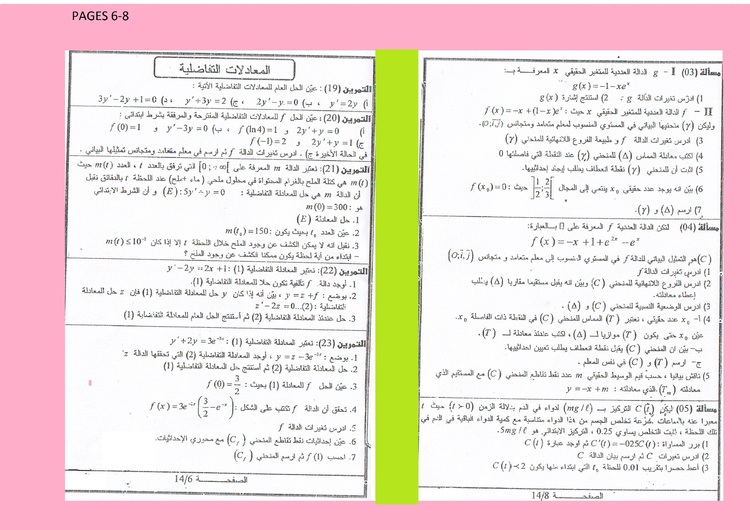 PAGES 6-8
المعادلات التفاضلية
التمرين (19) : عيّن الحل العام للمعادلات التفاضلية الآتية :
أ) y'=2y ، ب) 2y'-y=0 ، ج) y'+3y=2 ، د) 3y'-2y+1=0
التمرين (20) : عيّن الحل f للمعادلات التفاضلية المقترحة والمرفقة بشرط ابتدائي :
أ) 2y'+y=0 و f(ln4)=1 ، ب) y'-3y=0 و f(0)=1
ج) 2y'+y=1 و f(-1)=2
في الحالة الأخيرة ج) . ادرس تغيرات الدالة f ثم ارسم في معلم متعامد ومتجانس تمثيلها البياني .
التمرين (21) : نعتبر الدالة m المعرفة على [0;+∞[ التي ترفق بالعدد t ، العدد m(t) حيث
m(t) هي كتلة الملح بالغرام المحتواة في محلول ملحي (ماء +ملح) عند اللحظة t بالدقائق نقبل
أن الدالة m هي حل للمعادلة التفاضلية : (E):5y'+y=0 و أن الشرط الابتدائي
هو : m(0)=300
1. حل المعادلة (E)
2. عيّن العدد t₀ بحيث يكون : m(t₀)=150
3. نقبل انه لا يمكن الكشف عن وجود الملح خلال اللحظة t إلا إذا كان m(t)≤10⁻²
- ابتداء من أية لحظة يكون ممكنا الكشف عن وجود الملح ؟
التمرين (22) : نعتبر المعادلة التفاضلية (1) : y'-2y=2x+1
1. أوجد دالة f تآلفية تكون حلا للمعادلة التفاضلية (1).
2. بوضع : y=z+f ، بيّن أنه إذا كان y حل للمعادلة التفاضلية (1) فإن z حل للمعادلة
التفاضلية : z'-2z=0...(2)
3. حل عندئذ المعادلة التفاضلية (2) ثم أستنتج الحل العام للمعادلة التفاضلية (1)
التمرين (23) : نعتبر المعادلة التفاضلية (1) : y'+2y=3e⁻³ˣ
1. بوضع : y=z-3e⁻³ˣ ، أوجد المعادلة التفاضلية (2) التي تحققها الدالة z
2. حل المعادلة التفاضلية (2) ثم أستنتج حل المعادلة التفاضلية (1)
3. عيّن الحل f للمعادلة (1) بحيث : f(0)=3/2
4. تحقق أن الدالة f تكتب على الشكل : f(x)=3e⁻²ˣ(3/2-e⁻ˣ)
5. ادرس تغيرات الدالة f
6. عيّن إحداثيات نقط تقاطع المنحني (C_f) مع محوري الإحداثيات.
7. احسب f(1) ثم ارسم المنحني (C_f)
الصفحـــة 14/6
مسألة (03) I - g الدالة العددية للمتغير الحقيقي x المعرفة بـ:
g(x)=-1-xeˣ
1) ادرس تغيرات الدالة g : 2) استنتج إشارة g(x)
II - f الدالة العددية للمتغير الحقيقي x حيث : f(x)=-x+(1-x)eˣ
وليكن (γ) منحنيها البياني في المستوي المنسوب لمعلم متعامد ومتجانس (O;i,j).
3) ادرس تغيرات الدالة f و طبيعة الفروع اللانهائية للمنحني (γ)
4) اكتب معادلة المماس (Δ) للمنحني (γ) عند النقطة التي فاصلتها 0
5) اثبت أن للمنحني (γ) نقطة انعطاف يطلب إيجاد إحداثييها.
6) بيّن انه يوجد عدد حقيقي x₀ ينتمي إلى المجال ]1/2;2/3[ حيث : f(x₀)=0
7) ارسم (Δ) و (γ).
مسألة (04) لتكن الدالة العددية f المعرفة على ℝ بـالعبارة:
f(x)=-x+1+e²ˣ-eˣ
(C) هو التمثيل البياني للدالة f في المستوي المنسوب إلى معلم متعامد و متجانس (O;i,j)
1) ادرس تغيرات الدالة f
2) ادرس الفروع اللانهائية للمنحني (C) وبيّن انه يقبل مستقيما مقاربا (Δ) يطلب
إعطاء معادلته.
3) ادرس الوضعية النسبية للمنحني (C) و (Δ).
4) أ- x₀ عدد حقيقي ، نعتبر (T) المماس للمنحني (C) في النقطة ذات الفاصلة x₀.
عيّن x₀ حتى يكون (T) موازيا لـ (Δ) ، اكتب عندئذ معادلة لـ (T).
ب- بيّن ان المنحني (C) يقبل نقطة انعطاف يطلب تعيين احداثييها.
ج- ارسم (T) و (C) في نفس المعلم .
5) ناقش بيانيا ، حسب قيم الوسيط الحقيقي m عدد نقط تقاطع المنحني (C) مع المستقيم الذي
معادلته (Tₘ) الذي معادلته : y=-x+m
مسألة (05) ليكن C(t) التركيز بـ (mg/ℓ) لدواء في الدم بدلالة الزمن t (t≥0) حيث
معبرا عنه بالساعات سرعة تخلص الجسم من هذا الدواء متناسبة مع كمية الدواء الباقية في الدم في
تلك اللحظة ، ثابت التخلص يساوي 0.25 ، التركيز الابتدائي هو 5mg/ℓ.
1) برر المساواة : C'(t)=-025C(t) ثم أوجد عبارة C(t)
2) ادرس تغيرات C ثم ارسم بيان الدالة C
3) أعط حصرا بتقريب 0.01 للحظة t₀ التي ابتداء منها يكون C(t)<2
الصفحـــة 14/8